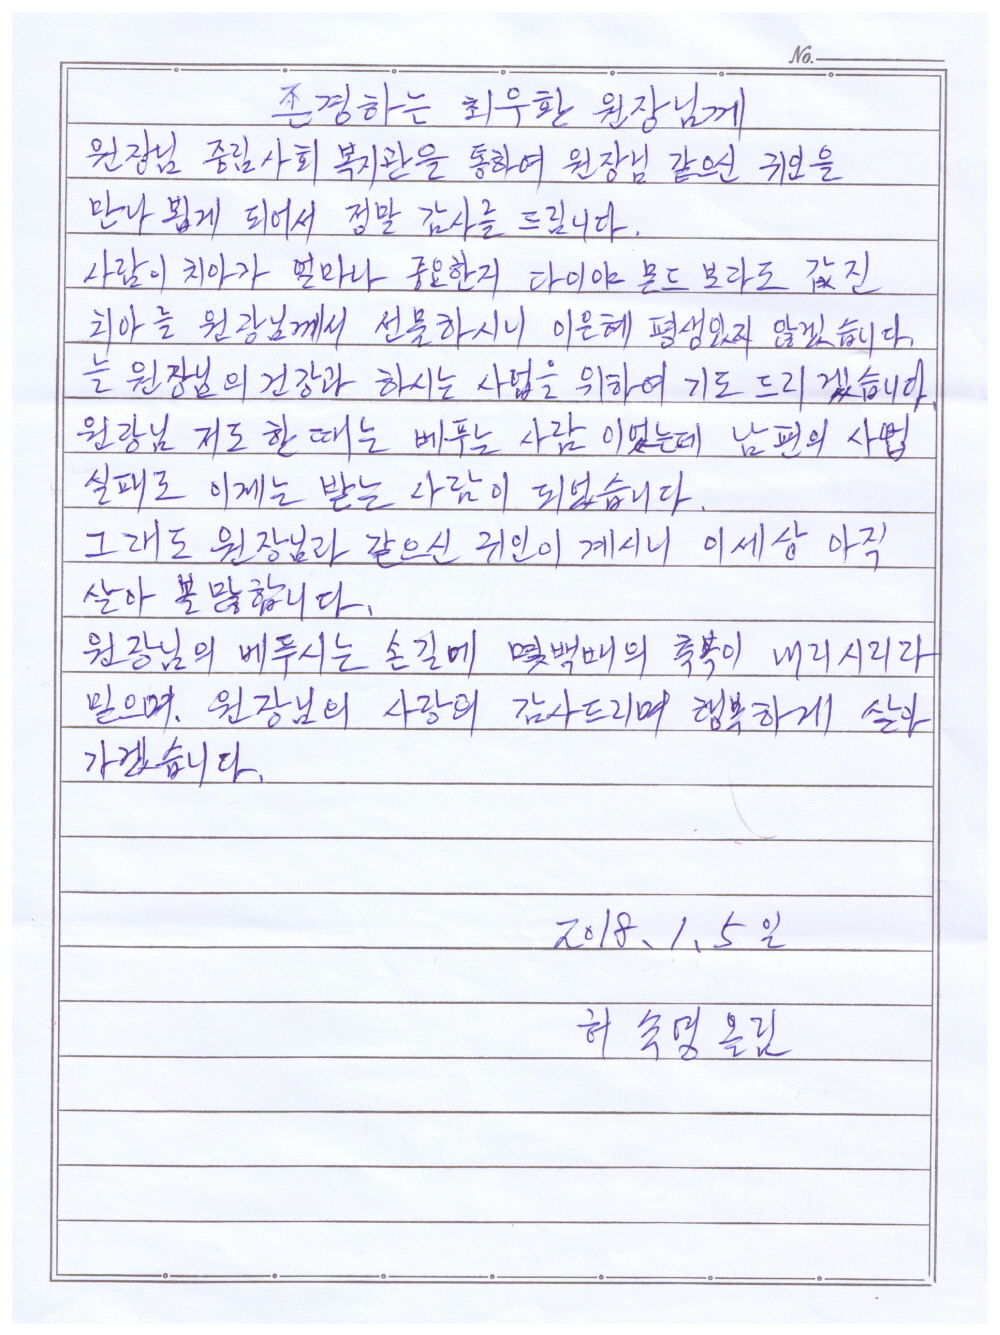 No.
존경하는 최우환 원장님께
원장님 중림사회 복지관을 통하여 원장님 같으신 귀인을
만나 뵙게 되어서 정말 감사를 드립니다.
사람이 치아가 얼마나 중요한지 다이야몬드 보라도 값진
치아를 원장님께서 선물하시니 이은혜 평생잊지 않겠습니다.
늘 원장님의 건강과 하시는 사업을 위하여 기도 드리겠습니다
원장님 저도 한때는 베푸는 사람 이었는데 남편의 사업
실패로 이제는 받는 사람이 되었습니다.
그래도 원장님과 같으신 귀인이 계시니 이세상 아직
살아 볼 만합니다.
원장님의 베푸시는 손길에 몇백배의 축복이 내리시리라
믿으며. 원장님의 사랑의 감사드리며 행복하게 살아
가겠습니다.
2018. 1. 5 일
허 숙영 올림